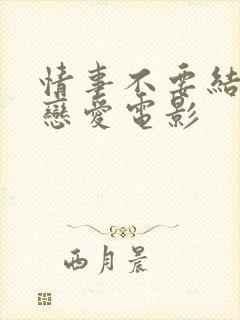 情事不要結
戀愛電影
西月晨